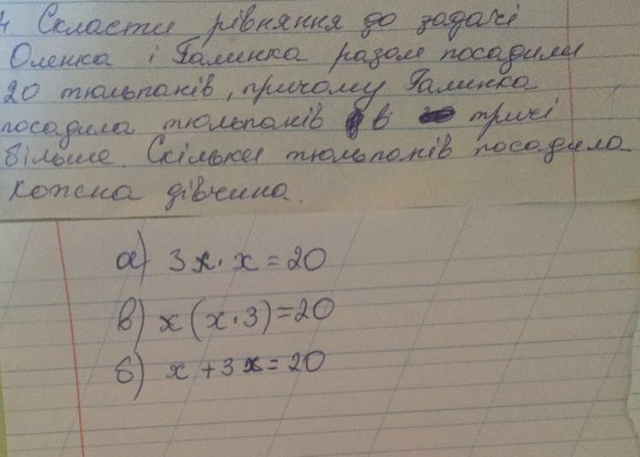 Скласти рівняння до задачі
Оленка і Галинка разом посадили
20 тюльпанів, причому Галинка
посадила тюльпанів в тричі
більше. Скільки тюльпанів посадила
кожна дівчина.
а) 3х·х=20
в) х(х·3)=20
б) х+3х=20